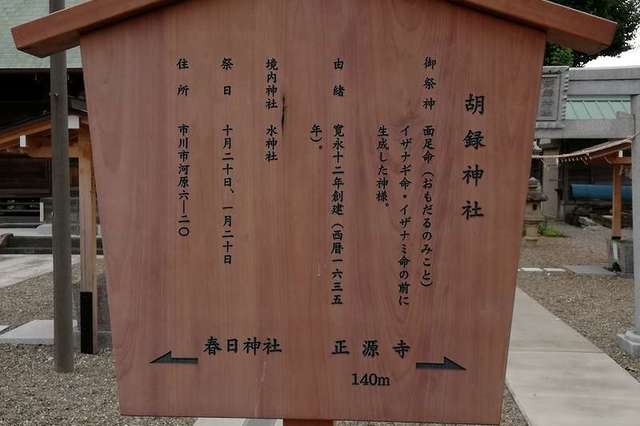 胡録神社
御祭神　面足命（おもだるのみこと）
イザナギ命・イザナミ命の前に
生成した神様。
由緒　寛永十二年創建（西暦一六三五
年）。
境内神社　水神社
祭日　十月二十日、一月二十日
住所　市川市河原六－二〇
春日神社
正源寺
140m